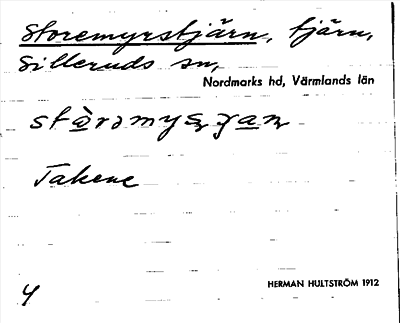 Storemyrstjärn, tjärn,
Silleruds sn,
Nordmarks hd, Värmlands län
Takene
HERMAN HULTSTRÖM 1912
4